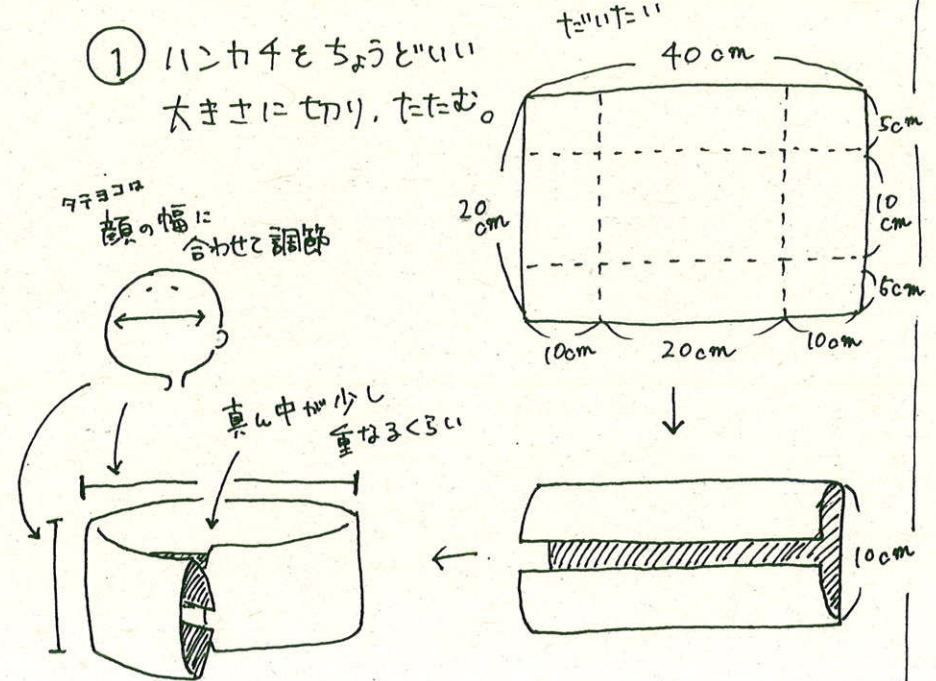 ① ハンカチをちょうどいい
大きさに切り、たたむ。
だいたい
40cm
5cm
10
cm
5cm
20
cm
10cm
20cm
10cm
タテヨコは
顔の幅に
合わせて調節
真ん中が少し
重なるくらい
10cm